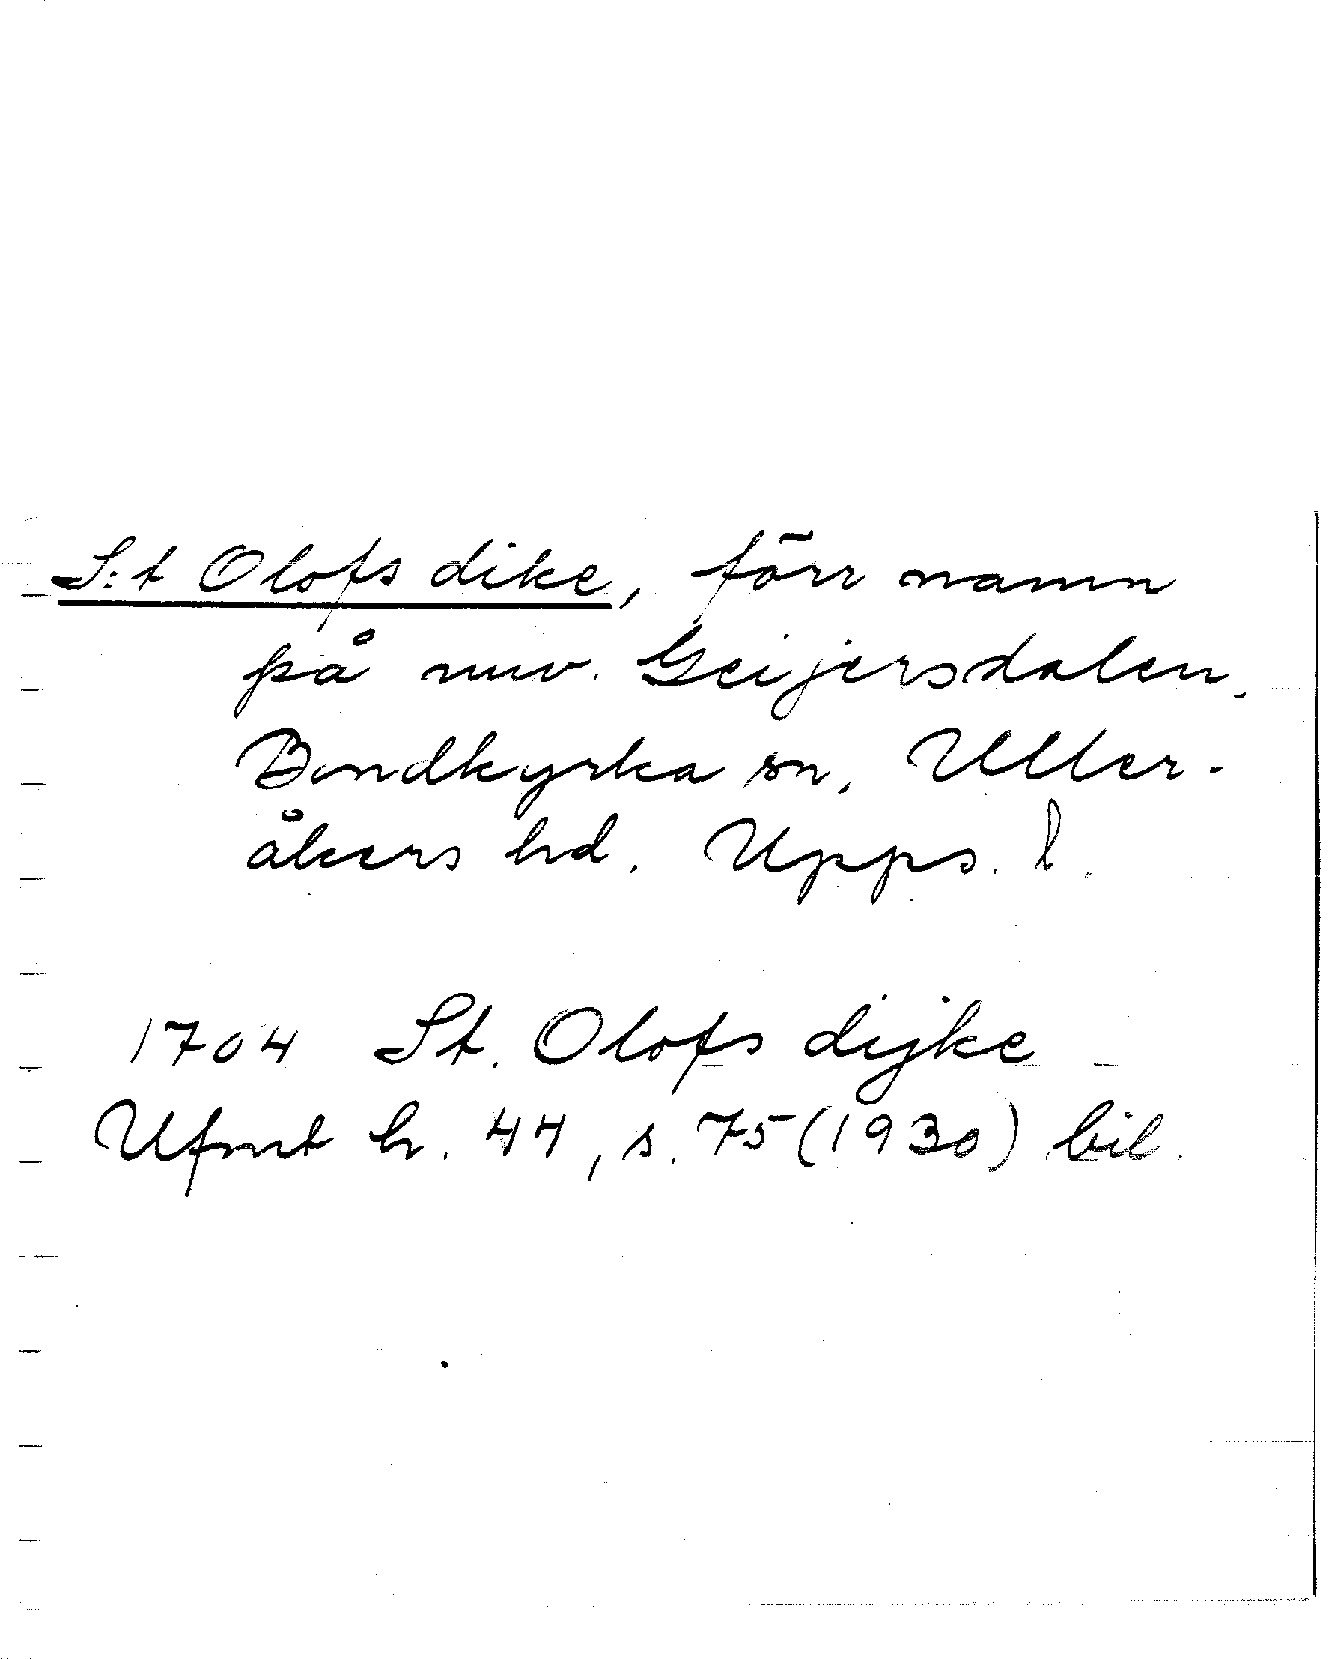 S:t Olofs dike, förr namn
på nuv. Geijersdalen,
Bondkyrka sn, Uller-
åkers hd. Upps. l.
1704 St. Olofs dijke
Ufmt h. 44, s. 75 (1930) bil.